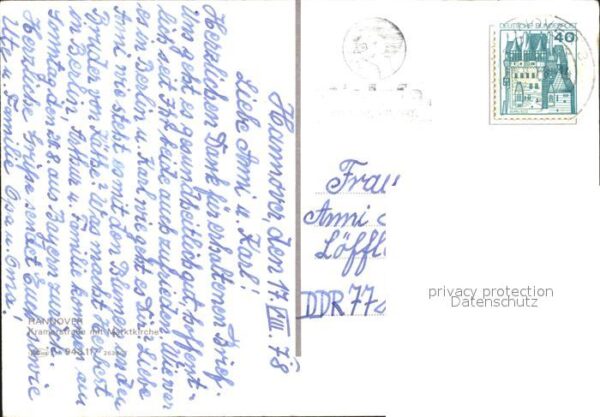 Hannover, den 17. VIII. 78
Liebe Anni u. Karl!
Herzlichen Dank für erhaltenen Brief.
Uns geht es gesundheitlich gut, hoffent-
lich seit Ihr beide auch zufrieden. Wie war
es in Berlin u. Karl wie geht es Dir? Liebe
Anni wie steht es mit den Blumen an den
Bruder von Käthe? Was macht Herbert
in Berlin, Arthur u. Familie kommen am
Sonntag den 20.8. aus Bayern zurück.
Herzliche Grüße sendet Euch sowie
Ute u. Familie Opa u. Oma.
HANNOVER
Kramerstraße mit Marktkirche
DEUTSCHE BUNDESPOST
40
Frau
Anni
Löffl
DDR 77
privacy protection
Datenschutz